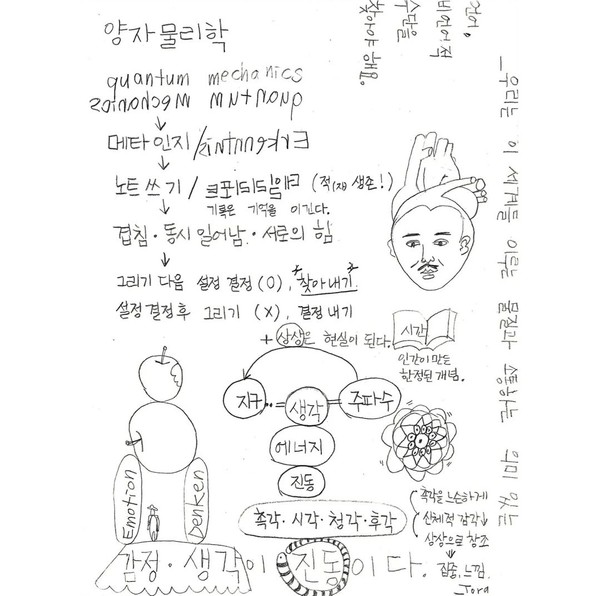 양자물리학
quantum mechanics
quantum mechanics
메타인지/
노트 쓰기 / (적자 생존!)
기록은 기억을 이긴다.
겹침·동시 일어남·서로의 힘
그리기 다음 설정 결정 (O), "찾아내기"
설정 결정 후 그리기 (X), 결정 내기
+ 상상은 현실이 된다.
지구 ‥= 생각 = 주파수
에너지
진동
촉각·시각·청각·후각
감정·생각이 진동이다.
Emotion
Denken
시간
인간이 만든
한정된 개념.
촉각을 느슨하게
신체적 감각↓
상상으로 창조
집중, 느낌.
_Tora
_우리는 이 세계를 이루는 물질과 소통하는 의미 있는
비언어적
수단을
찾아야 해요.